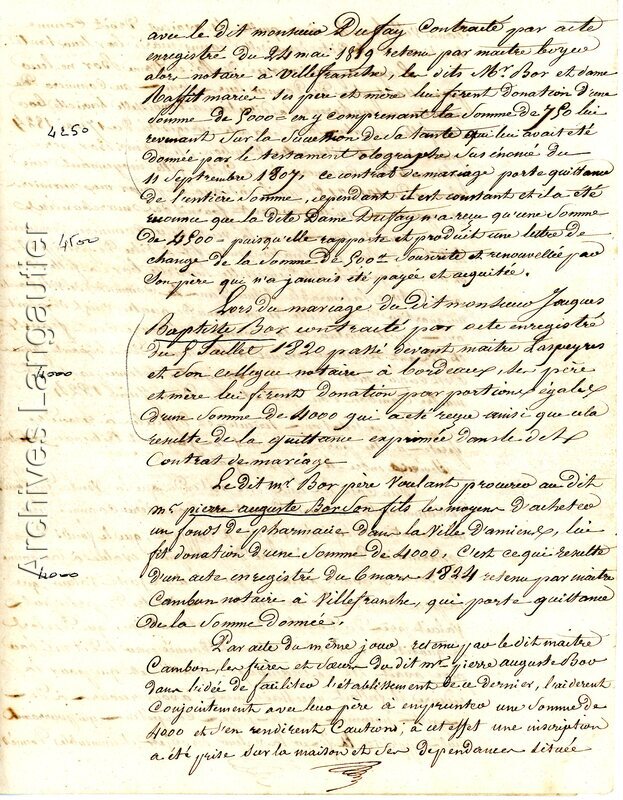 avec le dit monsieur Dufay Contracté par acte
enregistré du 24 mai 1819 retenu par maitre boyer
alors notaire à Villefranche, le dits Mr. Bor et dame
Raffit mariés ses père et mère lui firent donation d'une
Somme de 5000 en y comprenant la Somme de 750 lui
4250
revenant Sur la Succession de Sa tante qui lui avait été
donnée par le testament olographe Susénoncé du
11 Septembre 1807, ce contrat de mariage porte quittance
de l'entière Somme, cependant il est constant et il a été
reconnu que la dite Dame Dufay n'a reçu qu'une Somme
4500
de 4500 puisqu'elle rapporte et produit une lettre de
change de la Somme de 500 Souscrite et renouvellée par
Son père qui n'a jamais été payée et acquitée.
Lors du mariage du dit monsieur Jacques
Baptiste Bor contracté par acte enregistré
du 5 Juillet 1820 passé devant maitre Laspeyres
4000
et son collegue notaire à bordeaux, Ses père
et mère lui firent donation par portions égales
d'une Somme de 4000 qui a été reçue ainsi que cela
resulte de la quittance exprimée dans le dit
Contrat de mariage
Le dit mr. Bor père Voulant procurer au dit
mr. pierre auguste Bor Son fils le moyen d'acheter
un fonds de pharmacie dans la Ville d'amiens, lui
fit donation d'une Somme de 4000, C'est ce qui resulte
4000
d'un acte enregistré du 6 mars 1824 retenu par maitre
Cambon notaire à Villefranche, qui porte quittance
de la Somme donnée.
Par acte du même jour retenu par le dit maitre
Cambon, les frères et Sœurs du dit mr. pierre auguste Bor
dans l'idée de faciliter l'établissement de ce dernier, l'aiderent
Conjointement avec leur père à emprunter une Somme de
4000 et S'en rendirent Cautions; à cet effet une inscription
a été prise Sur la maison et Ses dependances Située
Archives Langautier